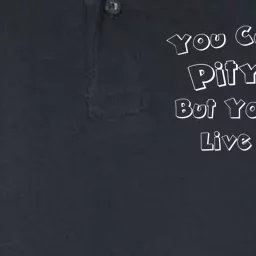 You C
Pity
But Yo
Live